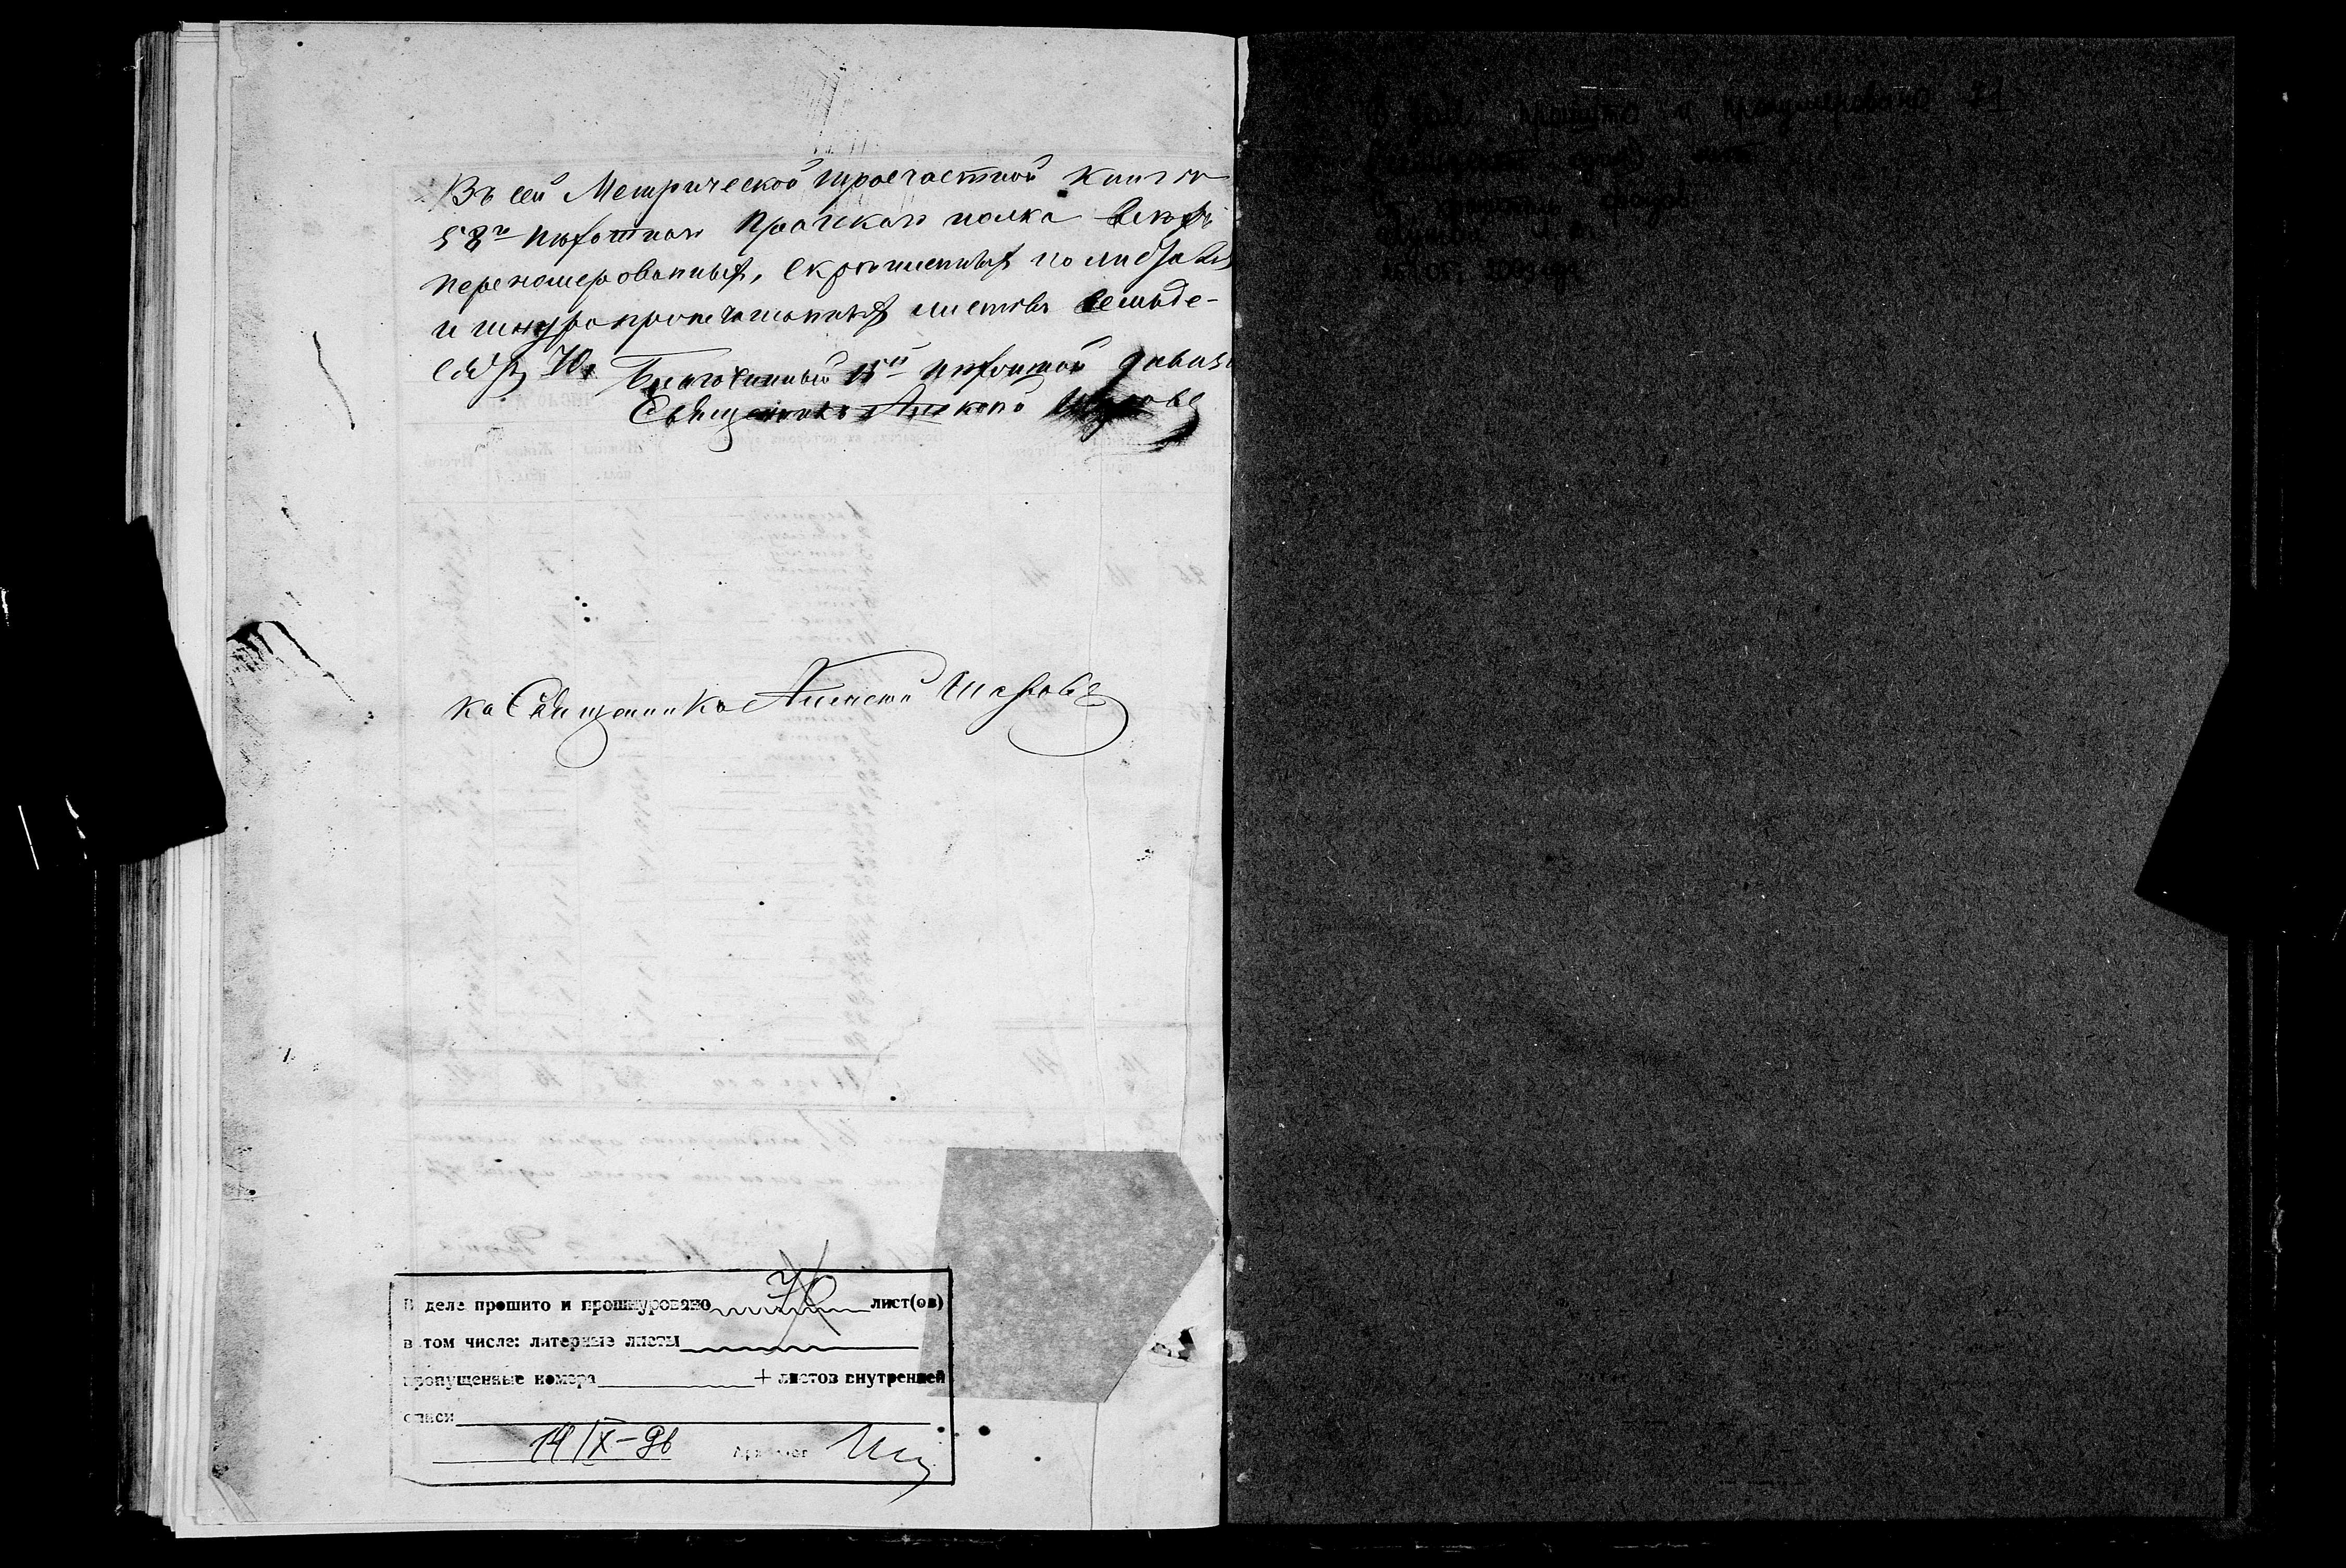 Въ сей Метрической троечастной книгѣ
58го пѣхотнаго Прагскаго полка всѣхъ
переномерованныхъ, скрѣпленныхъ по листамъ
и шнуропропечатанныхъ листовъ семьде-
сятъ 70.
Благочинный 15й пѣхотной дивизіи
Священникъ Алексѣй
ка Священникъ Алексѣй
В деле прошито и прошнуровано 70 лист(ов)
в том числе: литерные листы
пропущенные номера + листов внутренней
описи
14/IX-96
прошито и пронумеровано 71